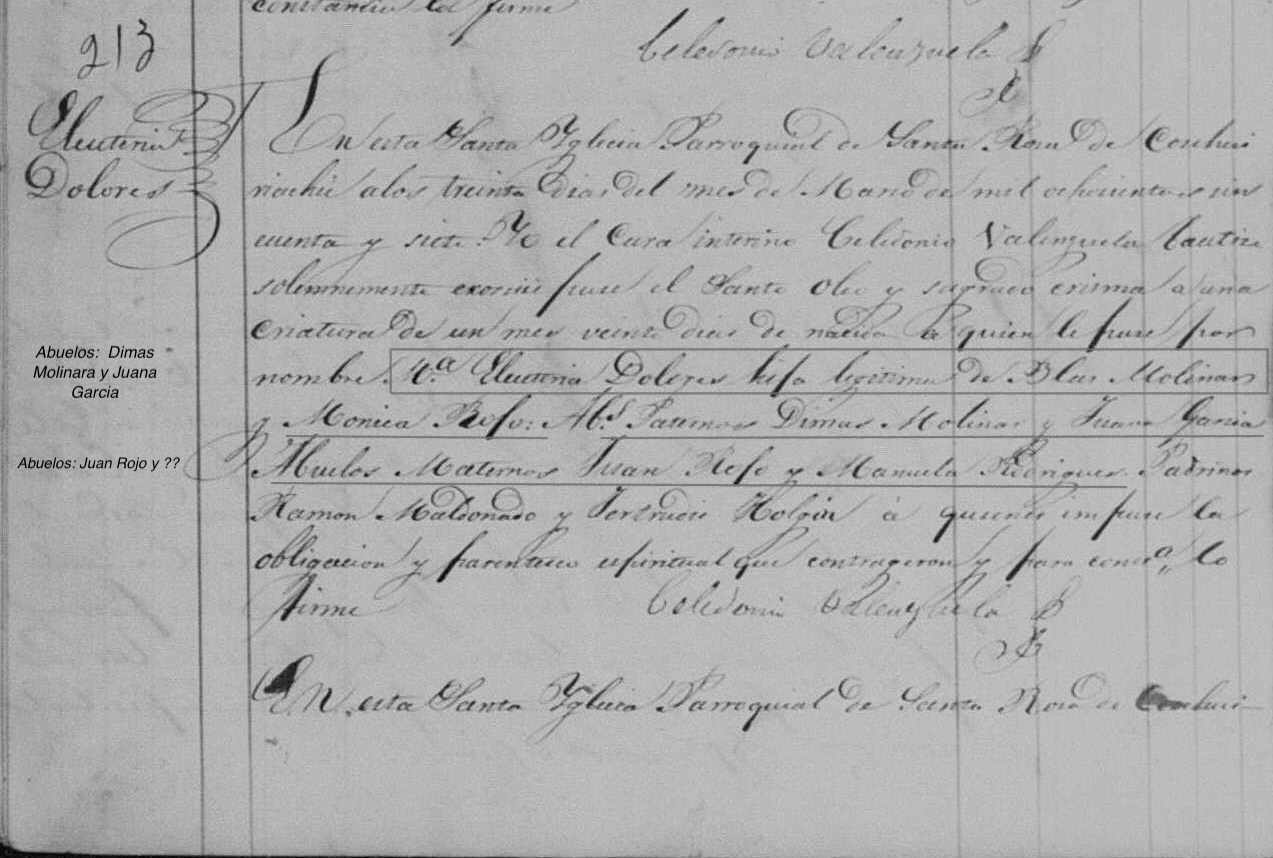 constancia lo firme
Celedonio Valenzuela
213
Eleuteria
Dolores
En esta Santa Yglecia Parroquial de Santa Rosa de Cosihui
riachic a los treinta dias del mes de Marso de mil ochocientos sin
cuenta y siete. Yo el Cura interino Celedonio Valenzuela bautize
solemnemente exorcisé puse el Santo Oleo y sagrado crisma a una
criatura de un mes veinte dias de nacida a quien le puse por
nombre M.a Eleuteria Dolores hija legitima de Blas Molinar
y Monica Rojo: Ab.s Paternos Dimas Molinar y Juana Garcia
Abuelos Maternos Juan Rojo y Manuela Rodrigues Padrinos
Ramon Maldonado y Jertrudis Holgin à quienes impuse la
obligacion y parentesco espiritual que contrageron y para const.a lo
firme
Celedonio Valenzuela
En esta Santa Yglecia Parroquial de Santa Rosa de Cosihui
Abuelos: Dimas
Molinara y Juana
Garcia
Abuelos: Juan Rojo y ??